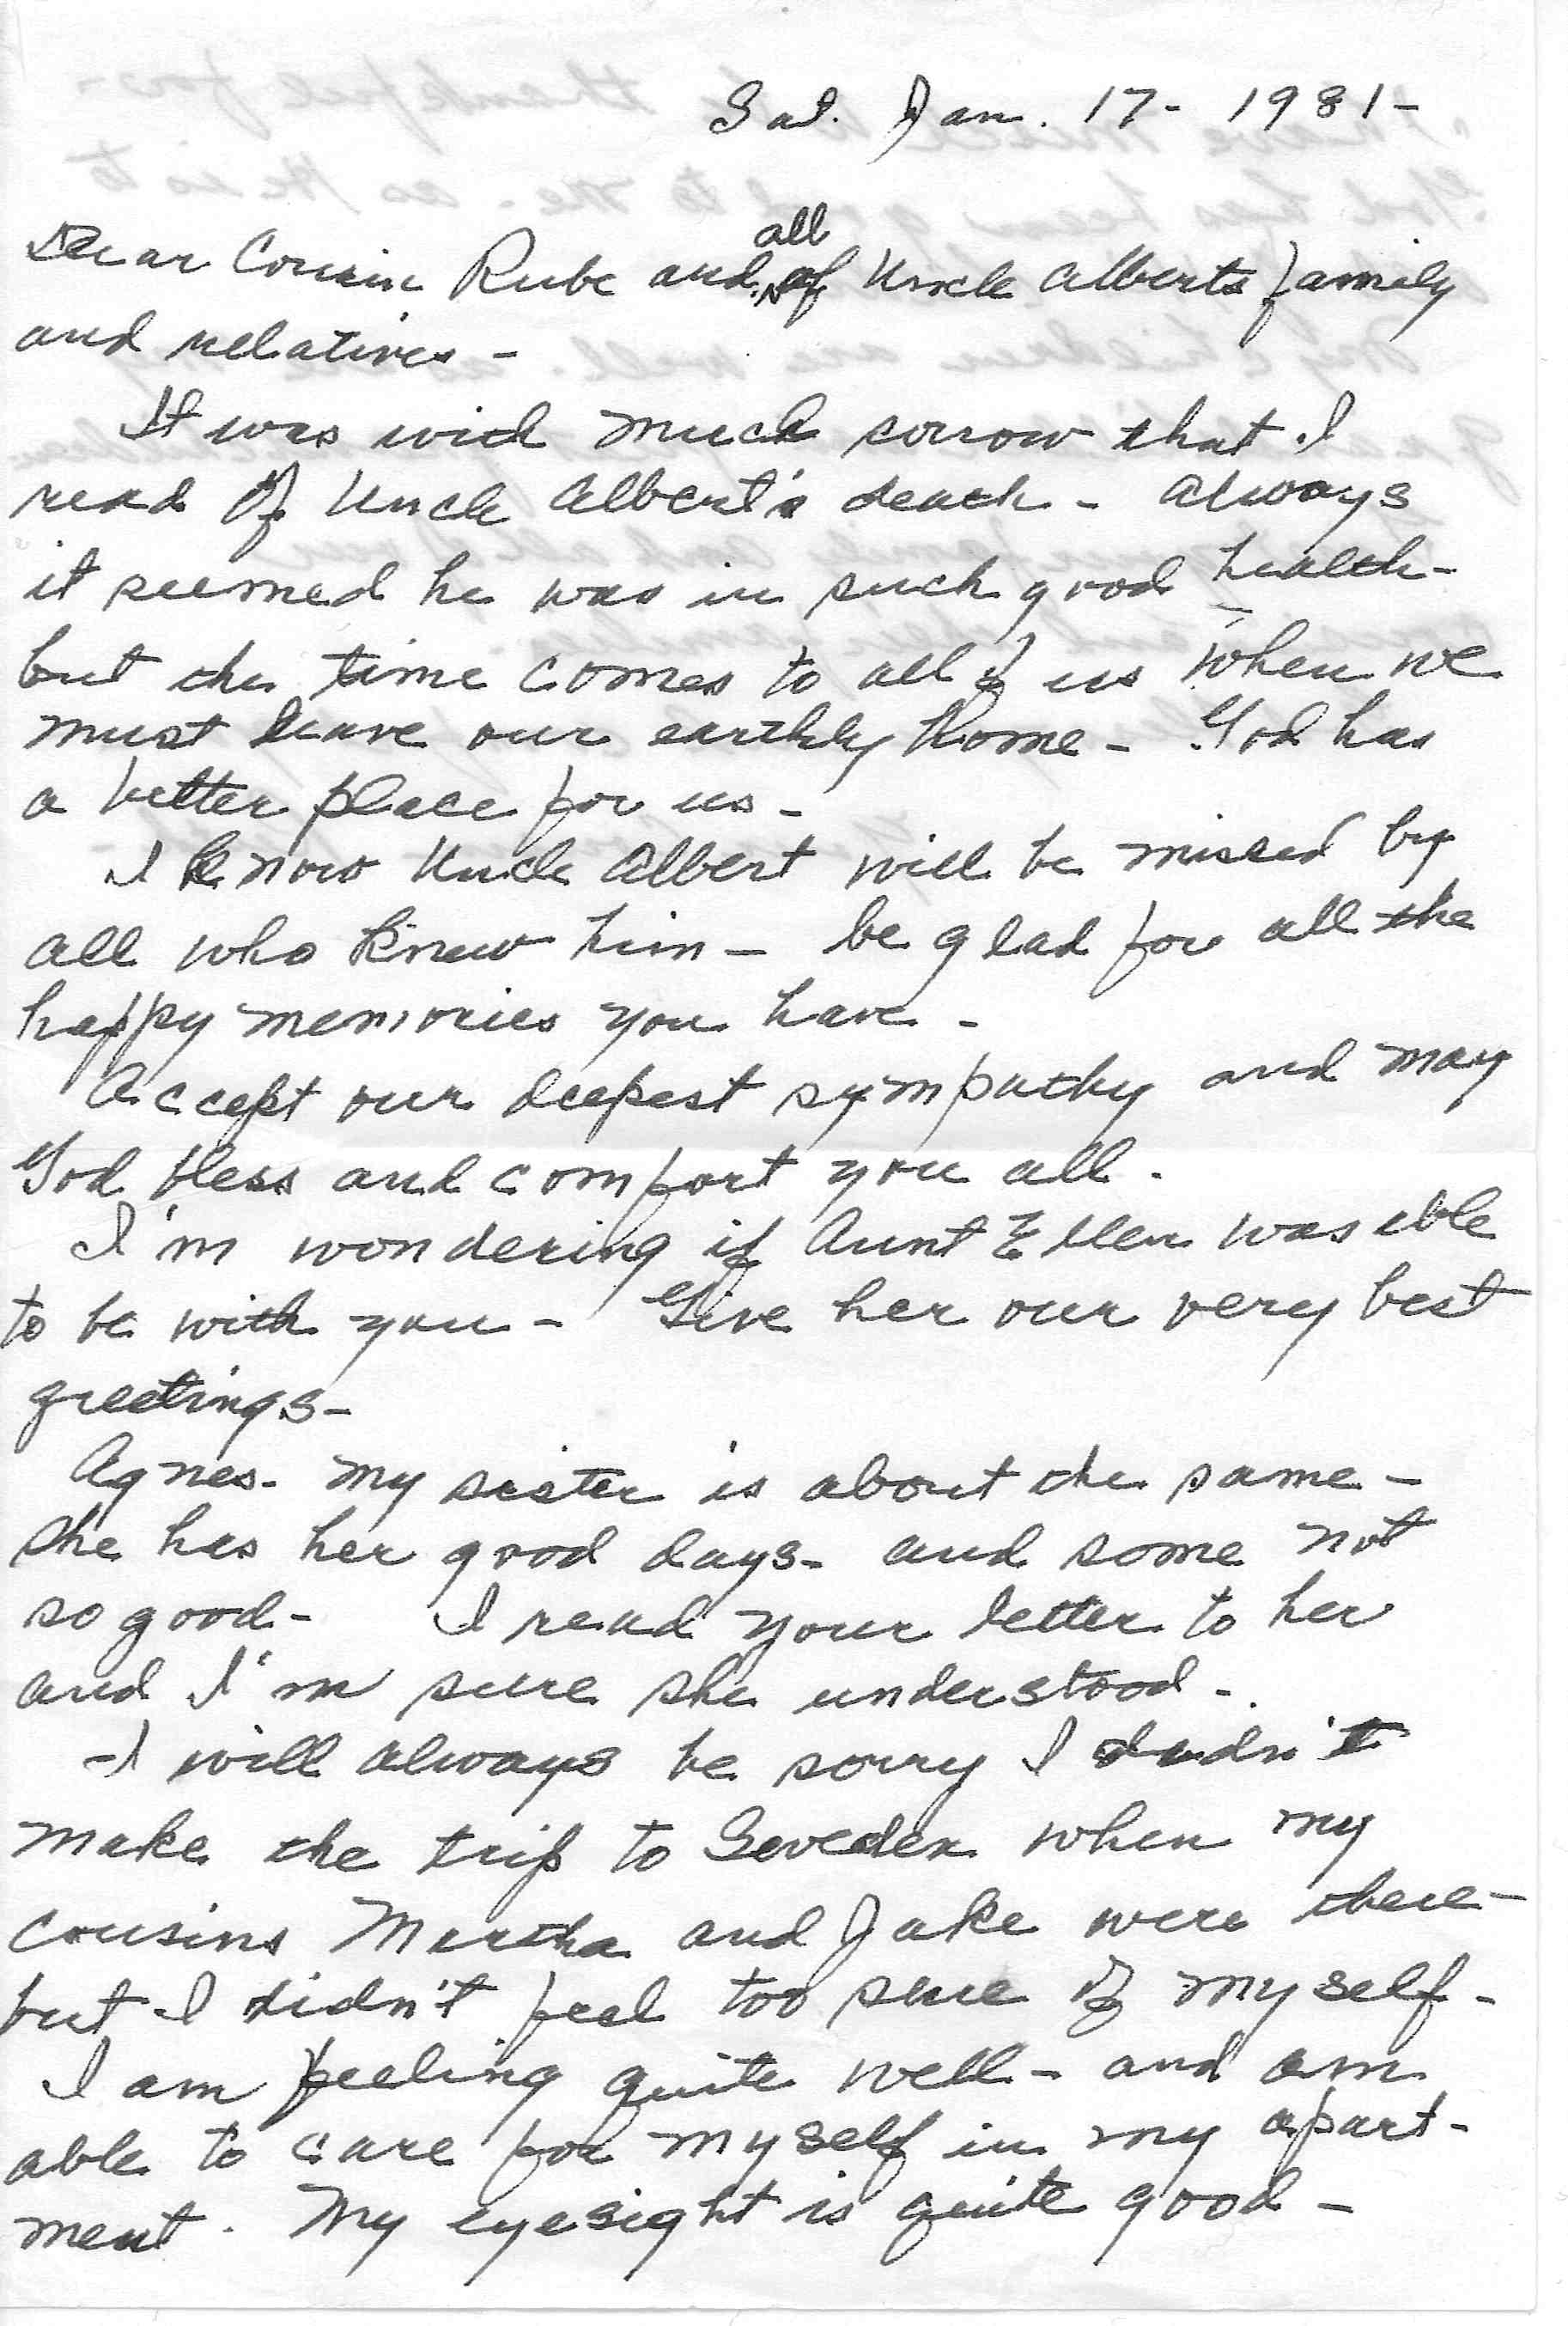 Sat. Jan. 17- 1981-
Dear Cousin Rube and all of Uncle Alberts family
and relatives -
It was with much sorrow that I
read of Uncle Albert's death - Always
it seemed he was in such good health-
but the time comes to all of us when we
must leave our earthly home - God has
a better place for us -
I know Uncle Albert will be missed by
all who knew him - be glad for all the
happy memories you have -
Accept our deepest sympathy and may
God bless and comfort you all -
I'm wondering if Aunt Ellen was able
to be with you - Give her our very best
greetings-
Agnes - my sister is about the same -
She has her good days - and some not
so good - I read your letter to her
and I'm sure she understood -
- I will always be sorry I didn't
make the trip to Sweden when my
cousins Martha and Jake were there-
but I didn't feel too sure of myself -
I am feeling quite well - and am
able to care for myself in my apart-
ment. My eyesight is quite good -